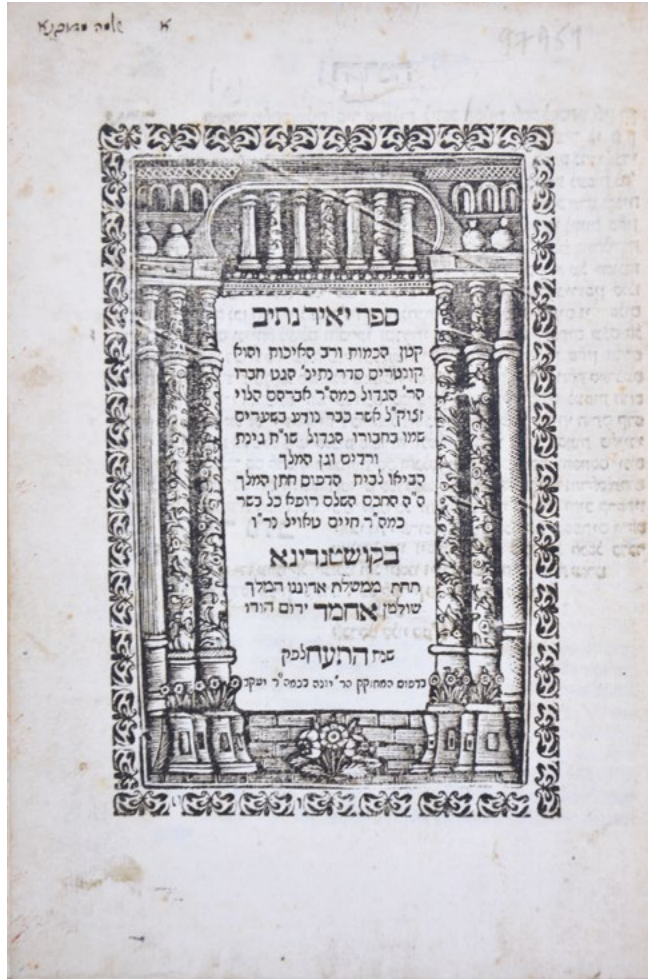 97451
ספר יאיר נתיב
קטן הכמות ורב האיכות והוא
קונטריס סדר נתינ' הגט חברו
הר' הגדול כמה"ר אברהם הלוי
זצוק"ל אשר כבר נודע בשערים
שמו בחבורו הגדול שו"ת גינת
ורדים וגן המלך
הביאו לבית הדפוס חתן המלך
ה"ה החכם השלם רופא כל בשר
כמה"ר חיים טאויל נר"ו
בקושטנדינא
תחת ממשלת אדוננו המלך
שולטן אחמד ירום הודו
שנת התעח לפק
בדפוס המחוקק הר' יונה בכמה"ר יעקב